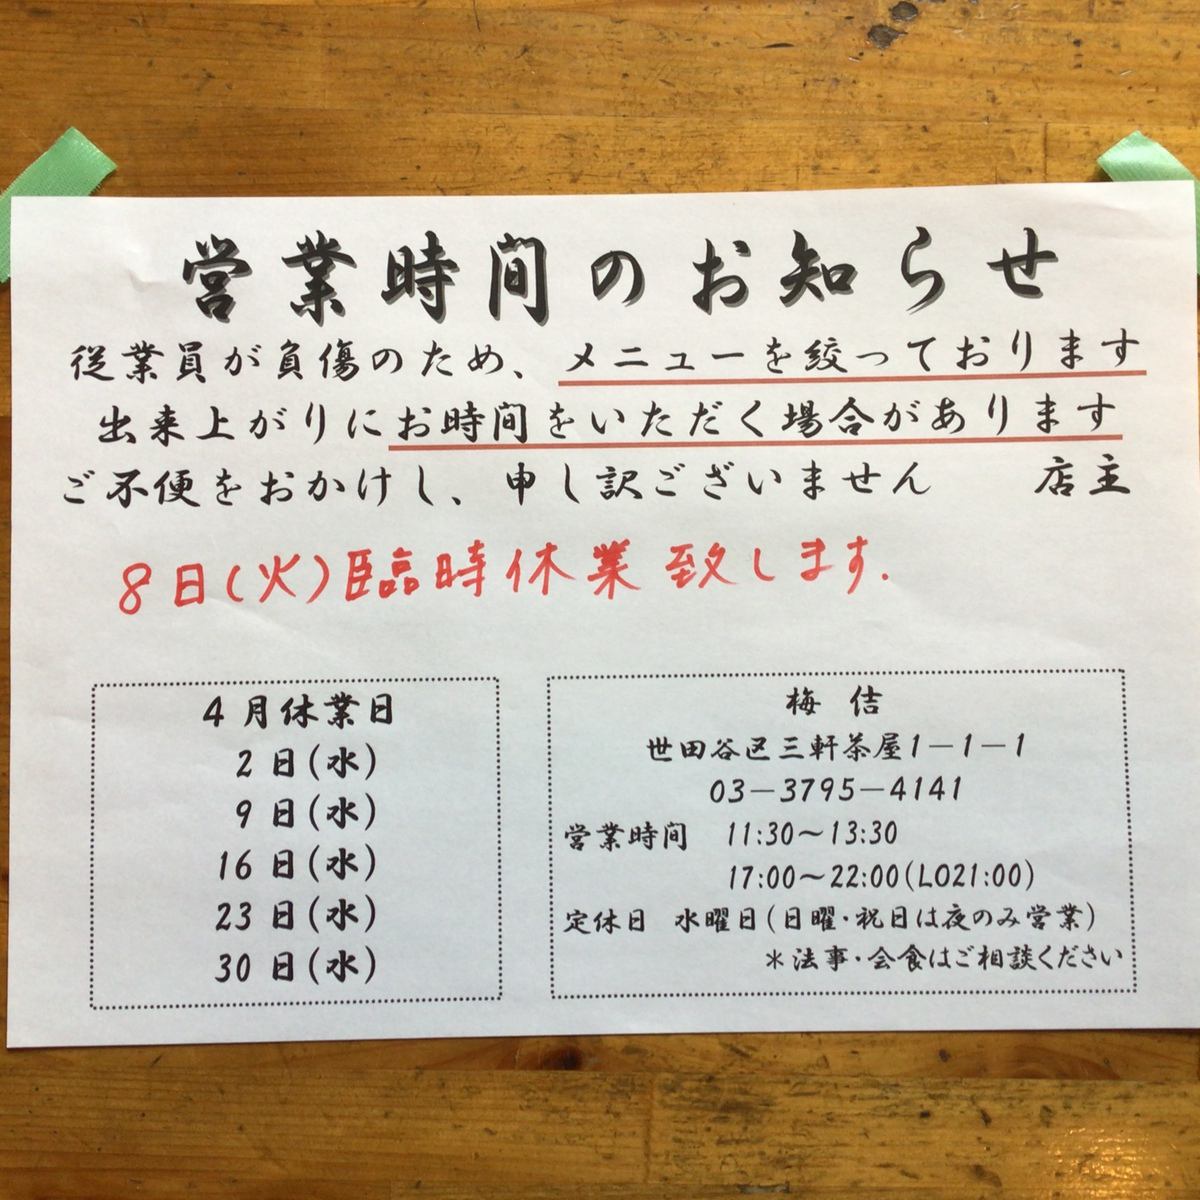 営業時間のお知らせ
従業員が負傷のため、メニューを絞っております
出来上がりにお時間をいただく場合があります
ご不便をおかけし、申し訳ございません 店主
8日(火)臨時休業致します.
4月休業日
2日(水)
9日(水)
16日(水)
23日(水)
30日(水)
梅佶
世田谷区三軒茶屋1－1－1
03－3795－4141
営業時間 11:30～13:30
17:00～22:00(LO21:00)
定休日 水曜日(日曜・祝日は夜のみ営業)
＊法事・会食はご相談ください